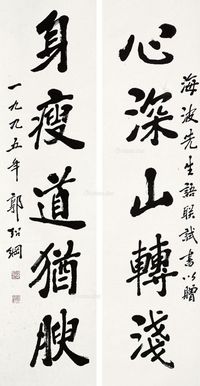 心深山轉淺
海波先生語聯試書以贈
身瘦道猶腴
一九九五年 郭